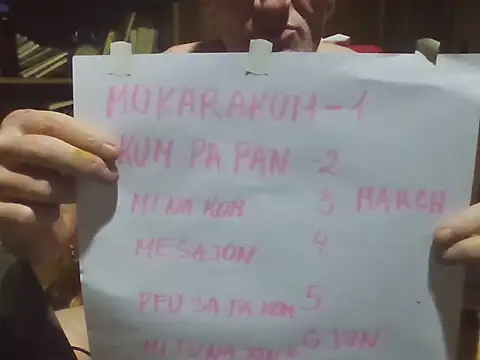 MOKARAKUM-1
KUM PA PAN -2
MI NA KOM 3 MARCH
MESAJON 4
PFU SA PA KOM 5
6 JON